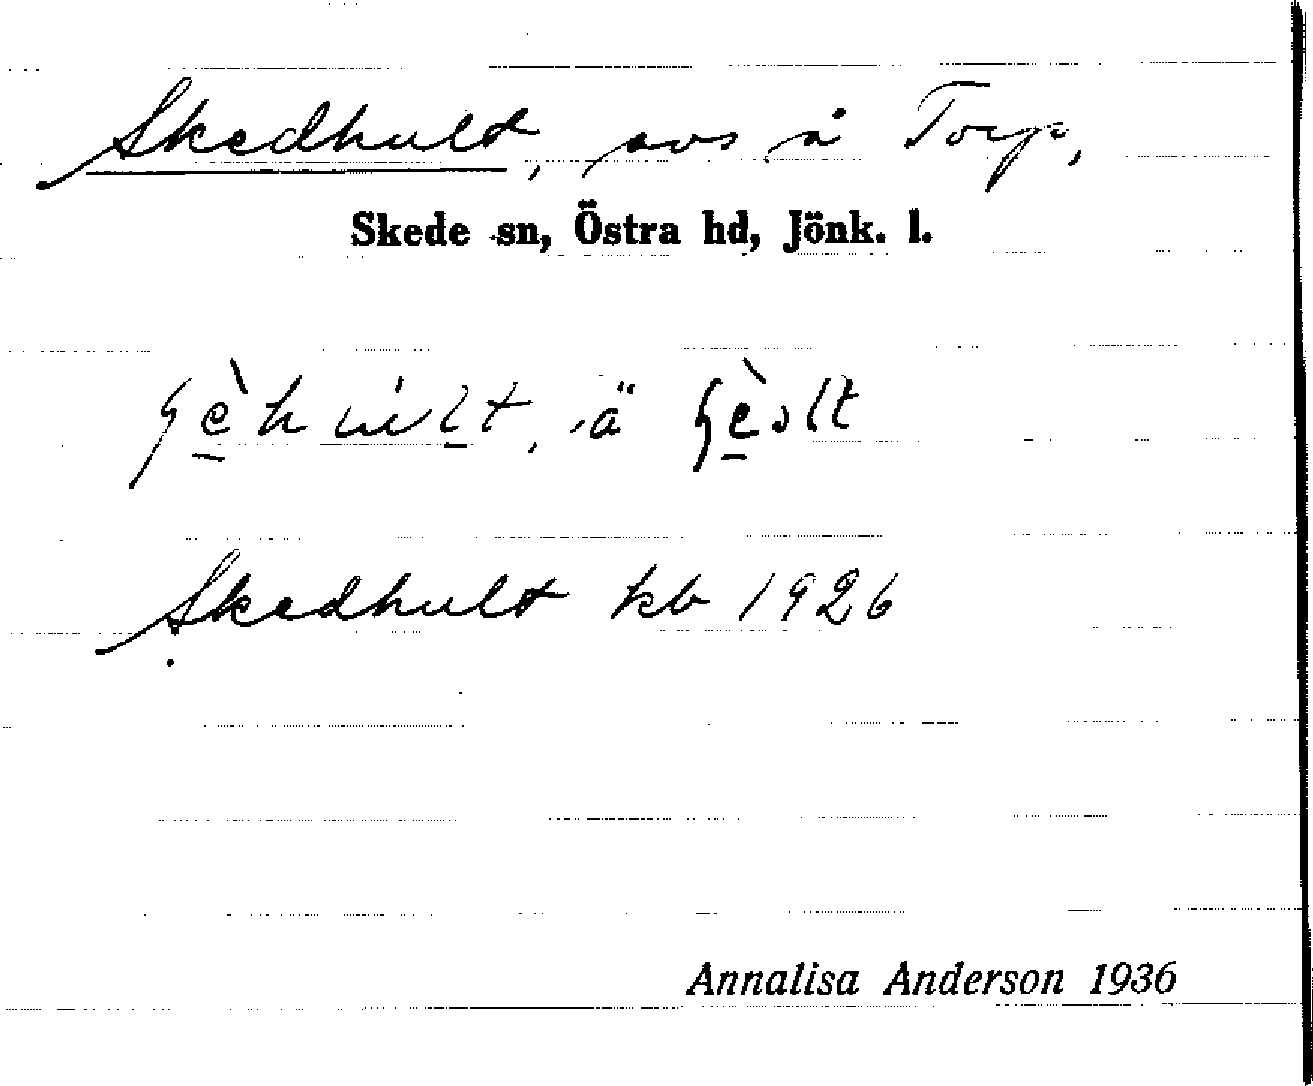 Skedhult, avs å Torp,
Skede sn, Östra hd, Jönk. l.
ä
Skedhult kb 1926
Annalisa Anderson 1936